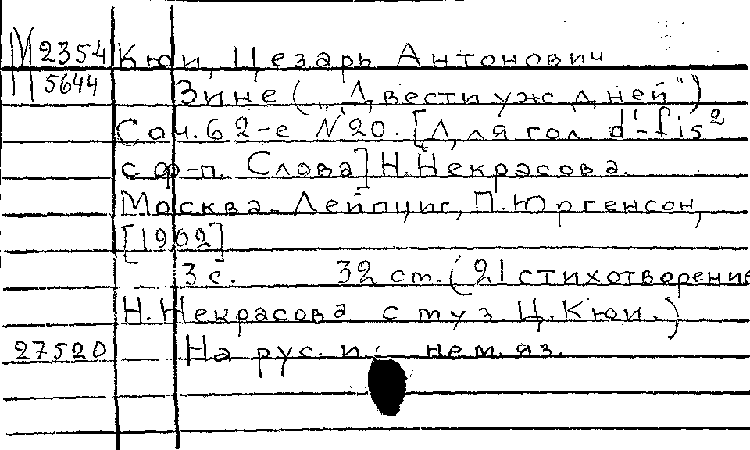 М 2354 Кюи, Цезарь Антонович
П 5644 Зине ("Двести уж дней")
Соч. 62-е N 20. [Для гол. d'-fis²
с ф-п. Слова] Н. Некрасова.
Москва-Лейпциг, П. Юргенсон,
[1902]
3 с. 32 cm. (21 стихотворение
Н. Некрасова с муз. Ц. Кюи.)
27520 На рус. и нем. яз.